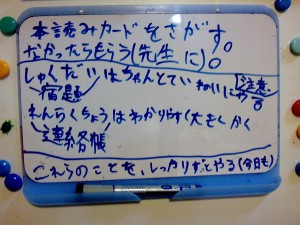 本読みカードをさがす。
なかったらもらう(先生に)。
しゅくだいはちゃんとていねいにやる
宿題
注意
れんらくちょうはわかりやすく大きくかく
連絡帳
これらのことを、しっかりずとやる(今日も)